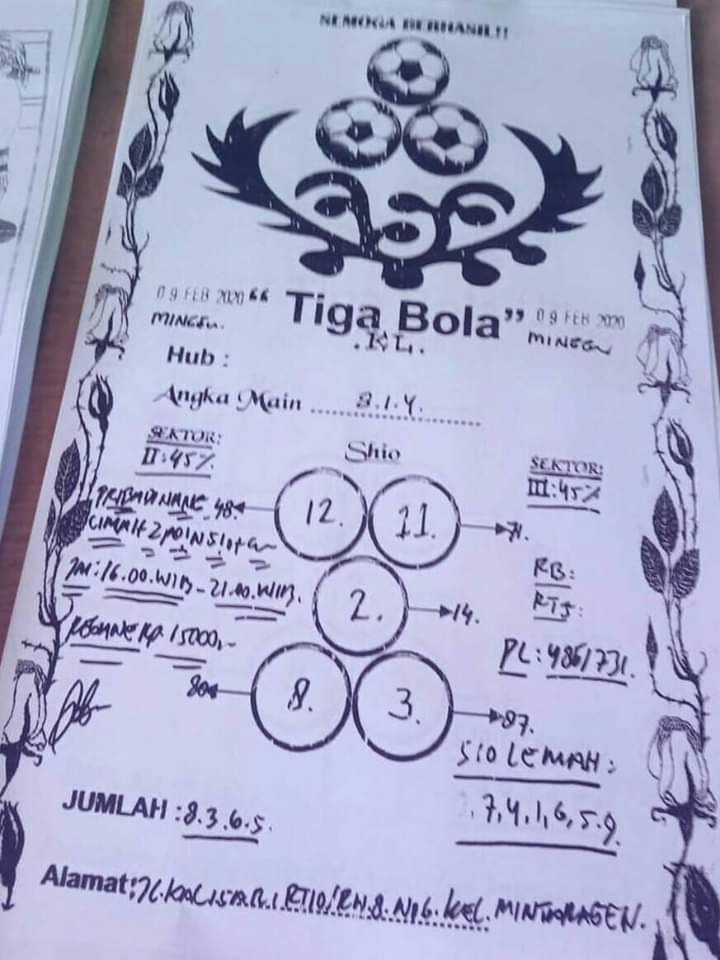 SEMOGA BERHASIL!!
09 FEB 2020 “ Tiga Bola” 09 FEB 2020
MINGGU. .KL. MINGGU
Hub :
Angka Main ........ 8.1.4. ........
SEKTOR:
II:45%
Shio
SEKTOR:
III:45%
48 12. 11. 71.
2 POIN
JM:16.00.WIB-21.00.WIB. 2. 14.
RB:
RTJ:
Rp. 15000,-
PL:4861731.
80 8. 3. 87.
SIO LEMAH:
7,4,1,6,5.9.
JUMLAH :8.3.6.5.
Alamat:JL.KALISARI.RT10/RW.8.No6.KEL.MINTARAGEN.